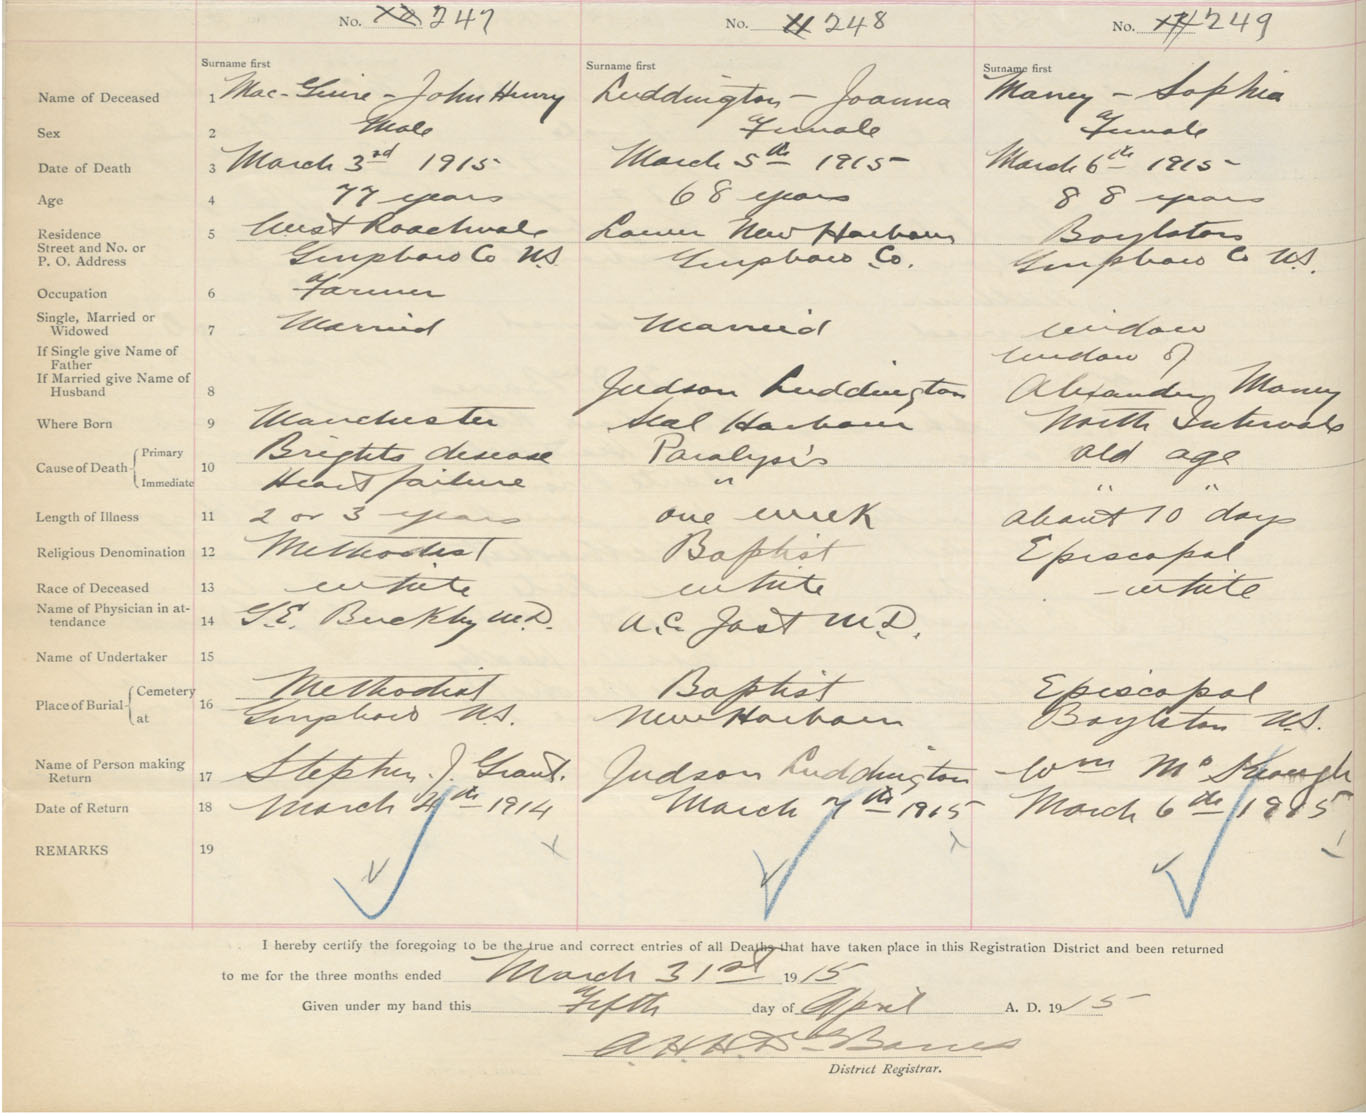 No. 247 No. 248 No. 249
Surname first Surname first Surname first
Name of Deceased 1 Mac-Guire - John Henry Luddington - Joanna Maney - Sophia
Sex 2 Male Female Female
Date of Death 3 March 3rd 1915 March 5th 1915 March 6th 1915
Age 4 77 years 68 years 88 years
Residence 5 West Roachvale Lower New Harbour Boylston
Street and No. or
P. O. Address Guysboro Co N.S. Guysboro Co. Guysboro Co N.S.
Occupation 6 Farmer
Single, Married or
Widowed 7 Married Married widow
If Single give Name of
Father widow of
If Married give Name of
Husband 8 Judson Luddington Alexander Maney
Where Born 9 Manchester Seal Harbour North Intervale
Cause of Death Primary 10 Brights disease Paralysis old age
Immediate Heart failure " " "
Length of Illness 11 2 or 3 years one week about 10 days
Religious Denomination 12 Methodist Baptist Episcopal
Race of Deceased 13 white white white
Name of Physician in at-
tendance 14 G.E. Buckley M.D. A.C. Jost M.D.
Name of Undertaker 15
Place of Burial Cemetery 16 Methodist Baptist Episcopal
at Guysboro N.S. New Harbour Boylston N.S.
Name of Person making
Return 17 Stephen J. Grant. Judson Luddington Wm
Date of Return 18 March 4th 1914 March 7th 1915 March 6th 1915
REMARKS 19
I hereby certify the foregoing to be the true and correct entries of all Deaths that have taken place in this Registration District and been returned
to me for the three months ended March 31st 1915
Given under my hand this Fifth day of April A. D. 1915
A.H.H. DesBarres
District Registrar.